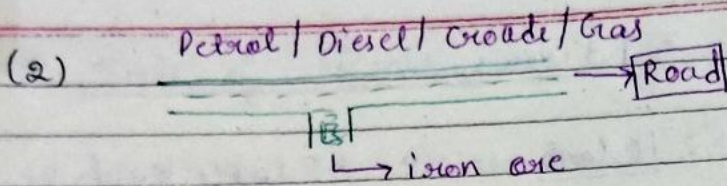 Petrol / Diesel / Croude / Gas
(2)
Road
iron ore